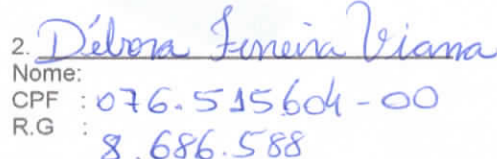 2. Débora Ferreira Viana
Nome:
CPF : 076.515604-00
R.G :
8.686.588